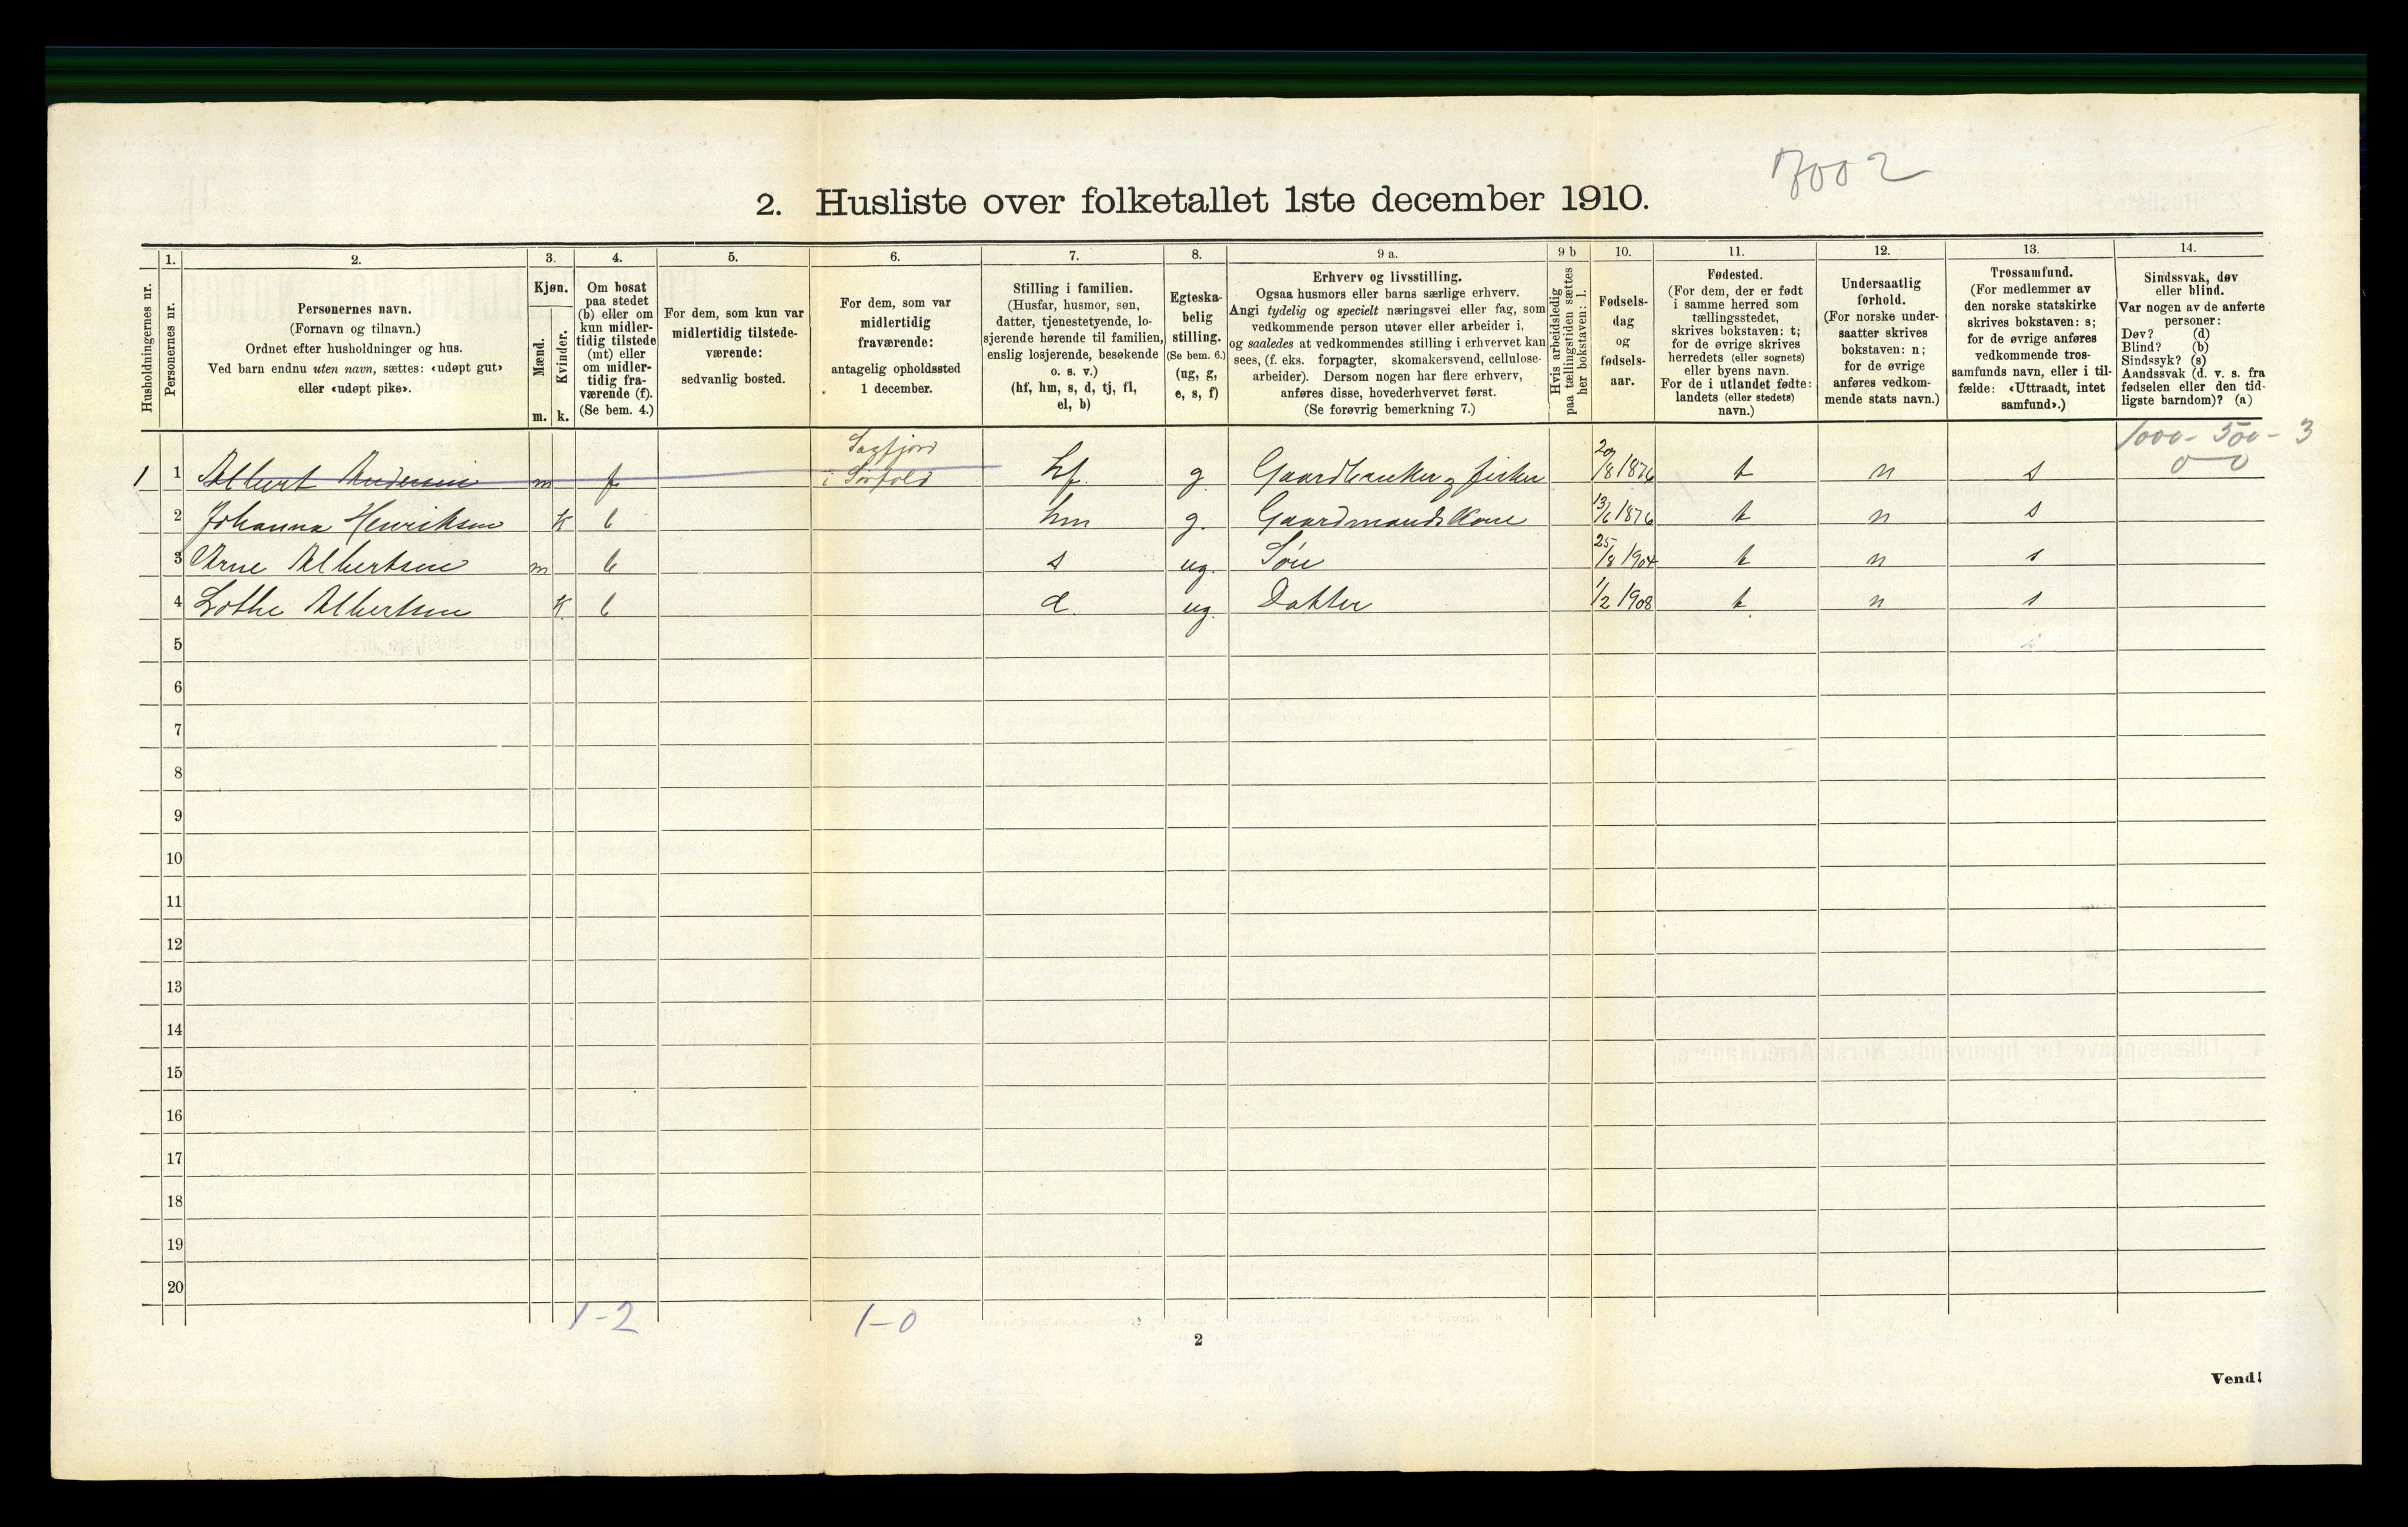 7002
2. Husliste over folketallet 1ste december 1910.
Husholdningernes nr.
1.
Personernes nr.
2.
Personernes navn.
(Fornavn og tilnavn.)
Ordnet efter husholdninger og hus.
Ved barn endnu uten navn, sættes: «udøpt gut»
eller «udøpt pike».
3.
Kjøn.
Mænd.
Kvinder.
m. k.
4.
Om bosat
paa stedet
(b) eller om
kun midler-
tidig tilstede
(mt) eller
om midler-
tidig fra-
værende (f).
(Se bem. 4.)
5.
For dem, som kun var
midlertidig tilstede-
værende:
sedvanlig bosted.
6.
For dem, som var
midlertidig
fraværende:
antagelig opholdssted
1 december.
7.
Stilling i familien.
(Husfar, husmor, søn,
datter, tjenestetyende, lo-
sjerende hørende til familien,
enslig losjerende, besøkende
o. s. v.)
(hf, hm, s, d, tj, fl,
el, b)
8.
Egteska-
belig
stilling.
(Se bem. 6.)
(ug, g,
e, s, f)
9 a.
Erhverv og livsstilling.
Ogsaa husmors eller barns særlige erhverv.
Angi tydelig og specielt næringsvei eller fag, som
vedkommende person utøver eller arbeider i,
og saaledes at vedkommendes stilling i erhvervet kan
sees, (f. eks. forpagter, skomakersvend, cellulose-
arbeider). Dersom nogen har flere erhverv,
anføres disse, hovederhvervet først.
(Se forøvrig bemerkning 7.)
9 b
Hvis arbeidsledig
paa tællingstiden sættes
her bokstaven: l.
10.
Fødsels-
dag
og
fødsels-
aar.
11.
Fødested.
(For dem, der er født
i samme herred som
tællingsstedet,
skrives bokstaven: t;
for de øvrige skrives
herredets (eller sognets)
eller byens navn.
For de i utlandet fødte:
landets (eller stedets)
navn.)
12.
Undersaatlig
forhold.
(For norske under-
saatter skrives
bokstaven: n;
for de øvrige
anføres vedkom-
mende stats navn.)
13.
Trossamfund.
(For medlemmer av
den norske statskirke
skrives bokstaven: s;
for de øvrige anføres
vedkommende tros-
samfunds navn, eller i til-
fælde: «Uttraadt, intet
samfund».)
14.
Sindssvak, døv
eller blind.
Var nogen av de anførte
personer:
Døv? (d)
Blind? (b)
Sindssyk? (s)
Aandssvak (d. v. s. fra
fødselen eller den tid-
ligste barndom)? (a)
1000 - 500 - 3
0 - 0
1 1 Albert Andersen m f Sagfjord i Sørfold hf. g. Gaardbruker og fisker 29/8 1876 t n s
2 Johanna Henriksen k b hm g. Gaardmandskone 13/6 1876 t n s
3 Arne Albertsen m b s ug. Søn 25/8 1904 t n s
4 Lothe Albertsen k b d. ug. Datter 1/2 1908 t n s
5
6
7
8
9
10
11
12
13
14
15
16
17
18
19
20
1-2 1-0
2
Vend!